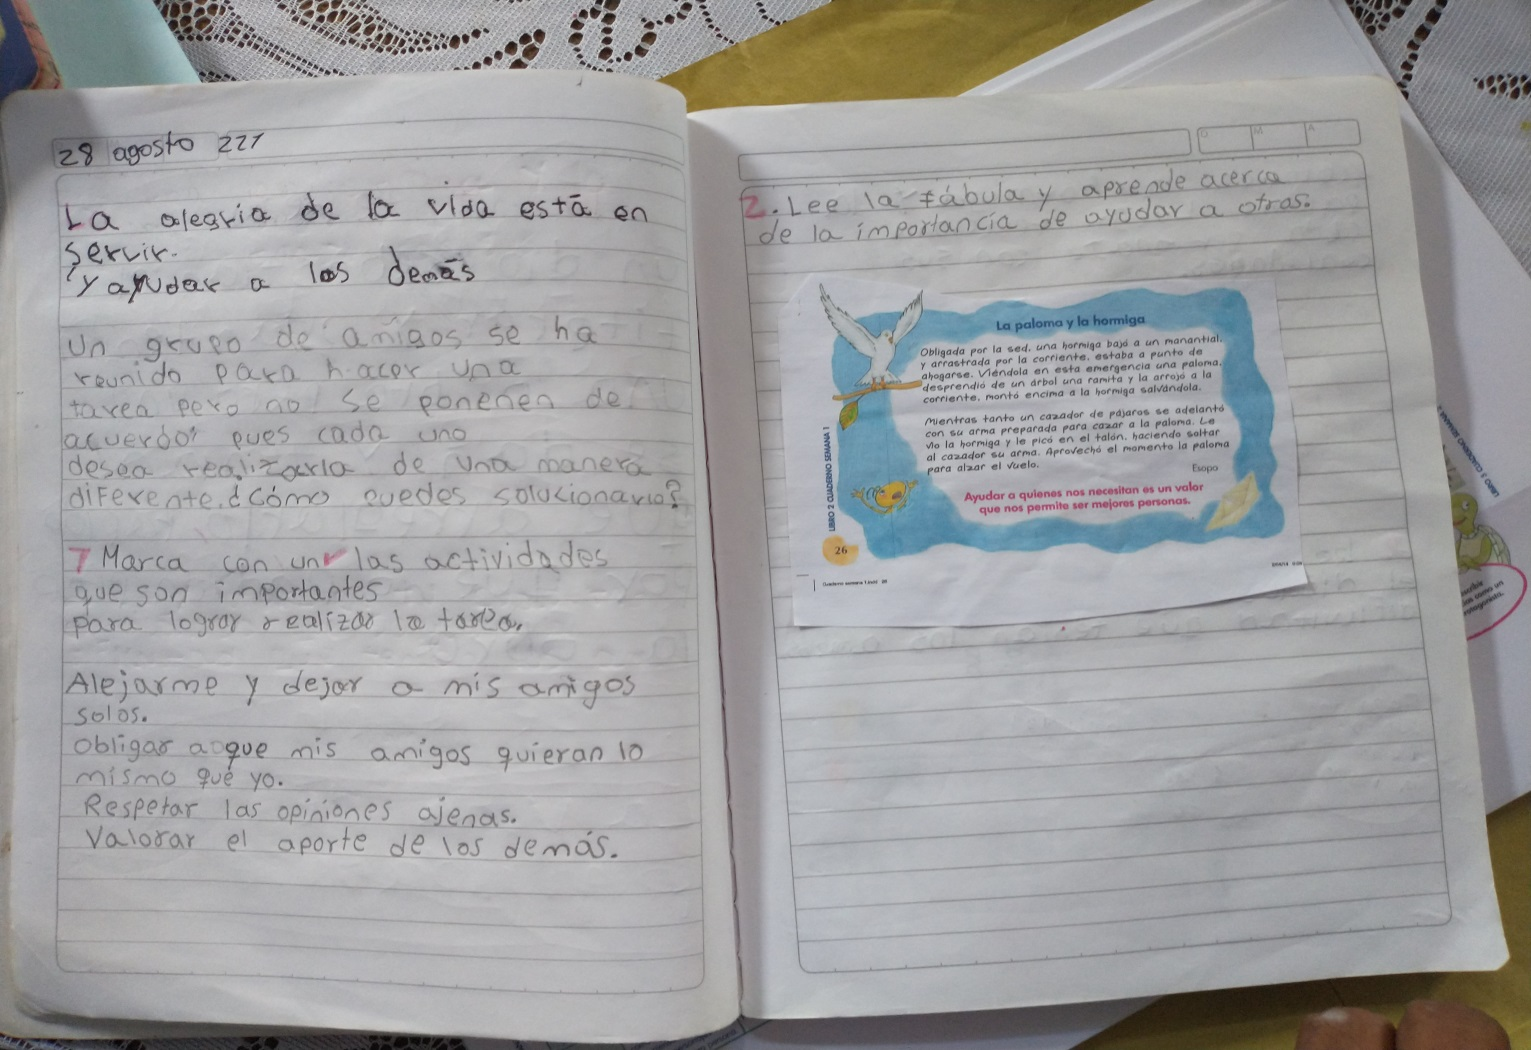 28 agosto 221
La alegria de la vida está en
servir.
y ayudar a los demás
Un grupo de amigos se ha
reunido para hacer una
tarea pero no se ponenen de
acuerdo pues cada uno
desea realizarla de una manera
diferente. ¿Cómo puedes solucionarlo?
1 Marca con un las actividades
que son importantes
para lograr realizar la tarea.
Alejarme y dejar a mis amigos
solos.
Obligar a que mis amigos quieran lo
mismo que yo.
Respetar las opiniones ajenas.
Valorar el aporte de los demás.
O M A
2. Lee la fábula y aprende acerca
de la importancia de ayudar a otras.
La paloma y la hormiga
Obligada por la sed, una hormiga bajó a un manantial,
y arrastrada por la corriente, estaba a punto de
ahogarse. Viéndola en esta emergencia una paloma,
desprendió de un árbol una ramita y la arrojó a la
corriente, montó encima a la hormiga salvándola.
Mientras tanto un cazador de pájaros se adelantó
con su arma preparada para cazar a la paloma. Le
vio la hormiga y le picó en el talón, haciendo soltar
al cazador su arma. Aprovechó el momento la paloma
para alzar el vuelo.
Esopo
Ayudar a quienes nos necesitan es un valor
que nos permite ser mejores personas.
LIBRO 2 CUADERNO SEMANA 1
26
Cuaderno semana 1.indd 26